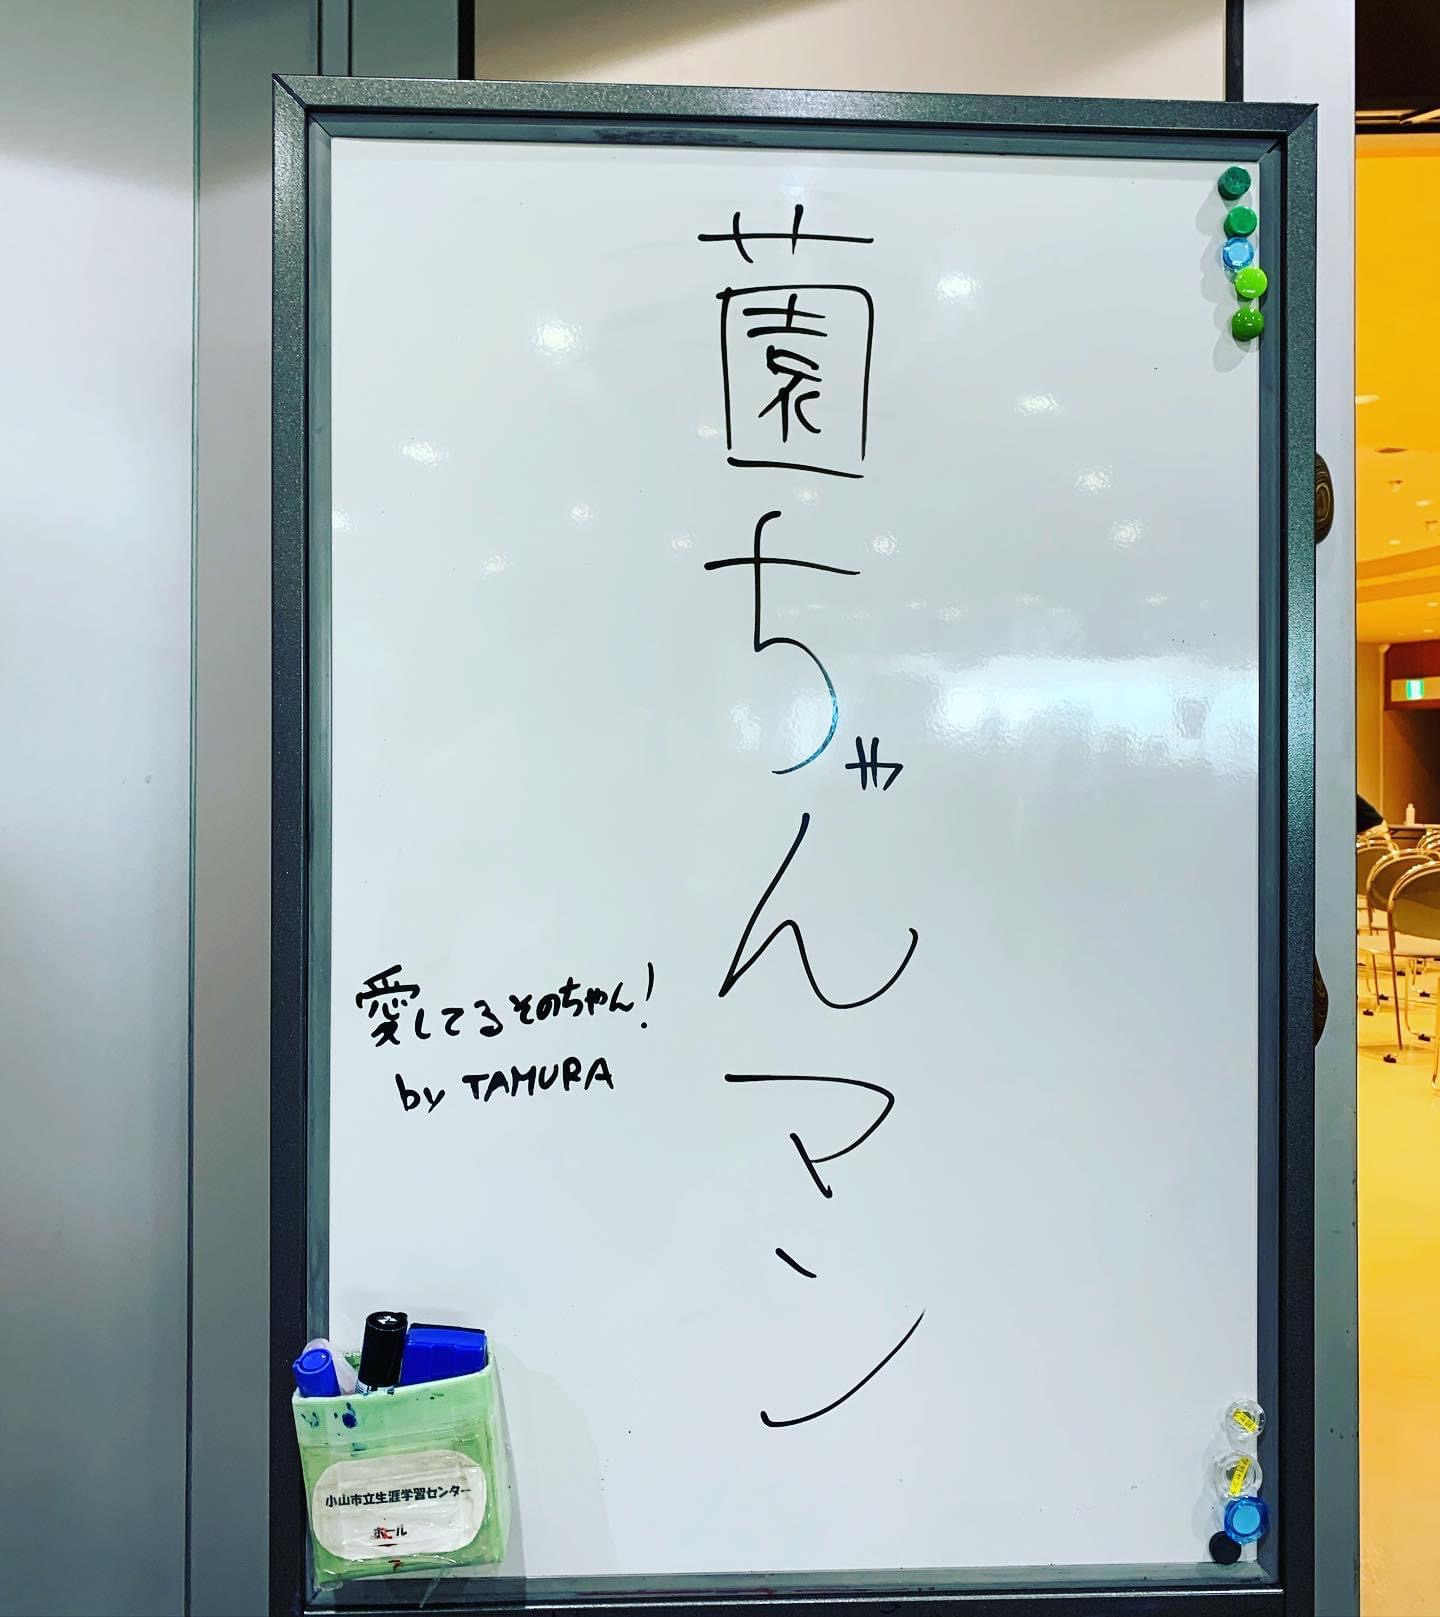 薗ちゃんマン
愛してるそのちゃん!
by TAMURA
小山市立生涯学習センター
ホール